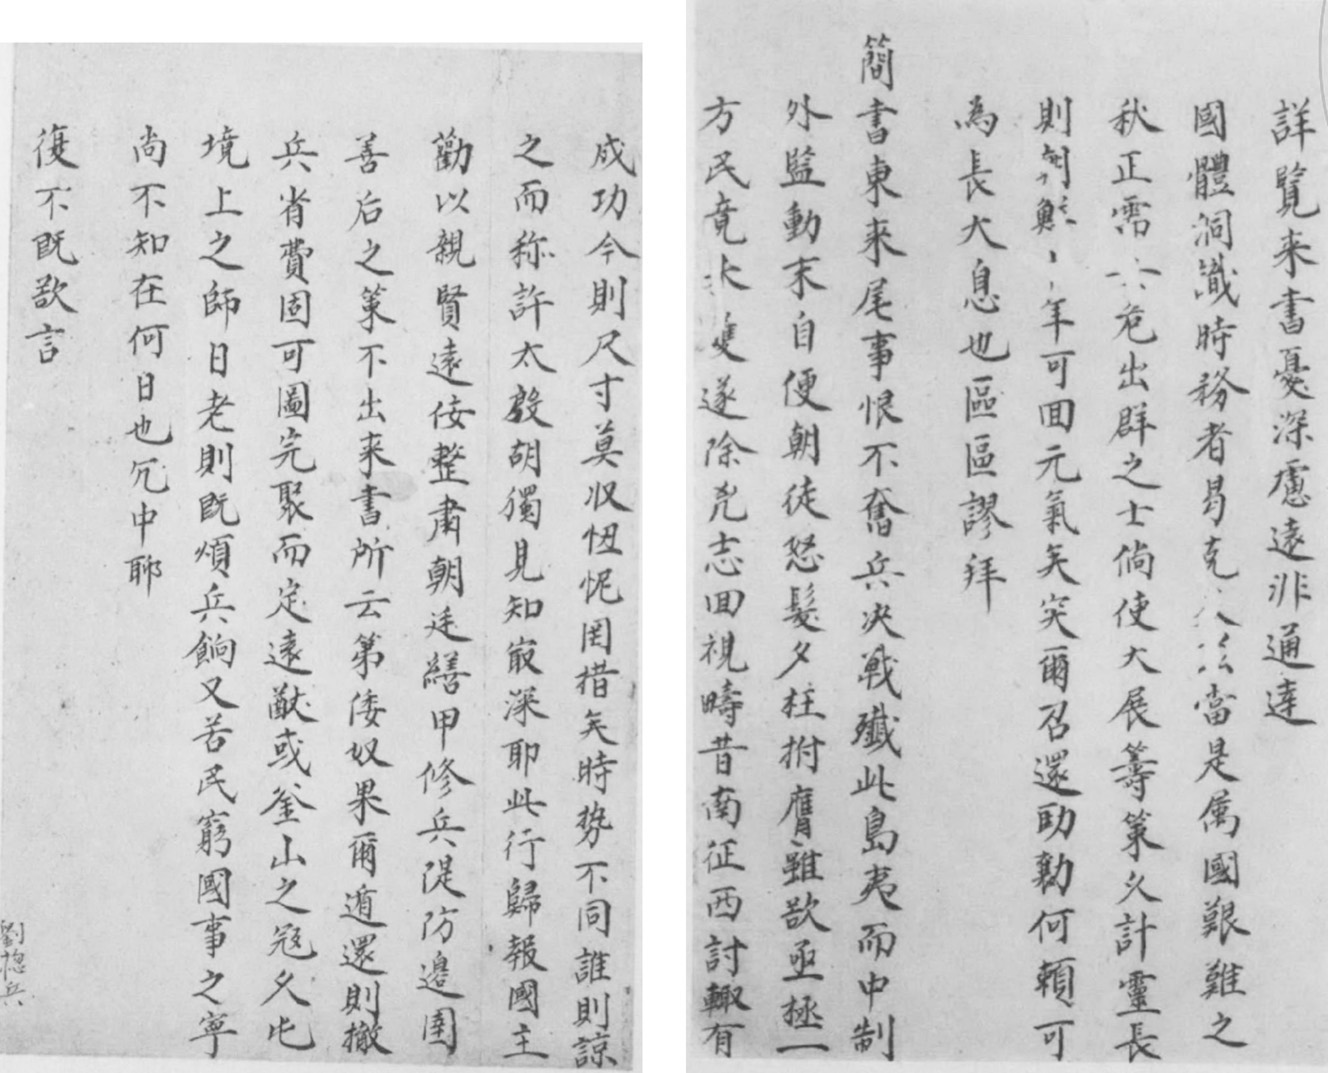 詳覽来書憂深慮遠非通達
國體洞識時務者曷克當是厲國艱難之
秋正需危出群之士倘使大展籌策久計靈長
則年可回元氣矣突爾召還助勷何頼可
為長大息也區區謬拜
簡書東来尾事恨不奮兵决戰殲此島夷而中制
外監動末自便朝徒怒髮夕柱拊膺雖欲亟拯一
方民竟未遂除兇志回視疇昔南征西討輙有
成功今則尺寸莫収忸怩罔措矣時势不同誰則諒
之而称許太殷胡獨見知㝡深耶此行歸報國主
勸以親賢遠佞整肅朝廷繕甲修兵隄防邊圉
善后之策不出来書所云第倭奴果爾遁還則撤
兵省費固可圖完聚而定遠猷或釜山之冦久屯
境上之師日老則既煩兵餉又苦民窮國事之寧
尚不知在何日也冗中聊
復不既欲言
劉揔兵